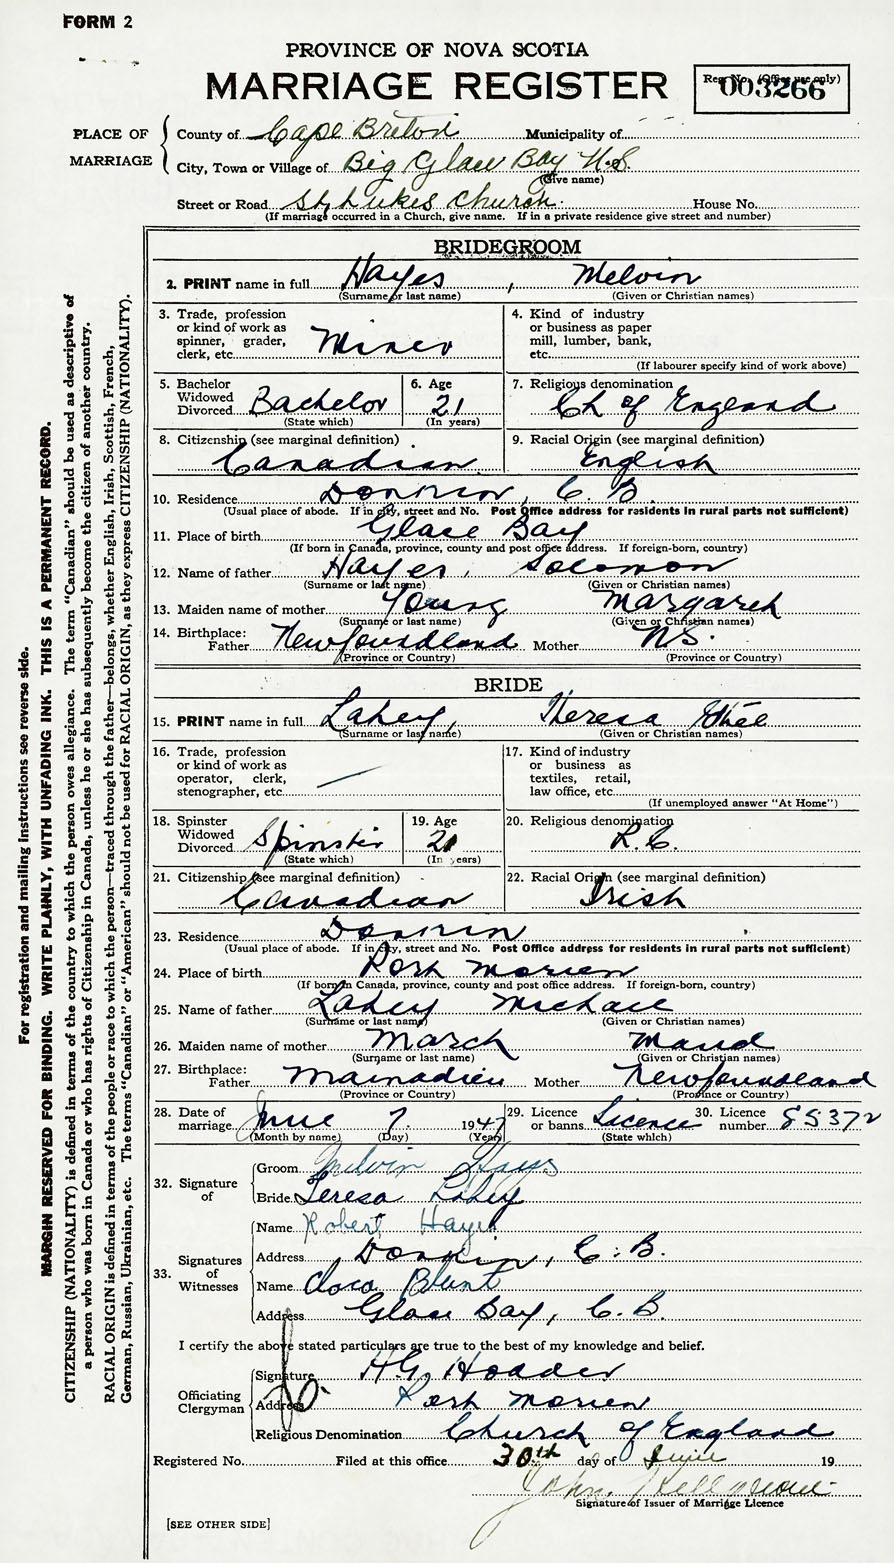 FORM 2
PROVINCE OF NOVA SCOTIA
MARRIAGE REGISTER
Reg. No. (Office use only)
003266
PLACE OF MARRIAGE
County of Cape Breton Municipality of
City, Town or Village of Big Glace Bay N.S.
(Give name)
Street or Road St. Lukes Church. House No.
(If marriage occurred in a Church, give name. If in a private residence give street and number)
BRIDEGROOM
2. PRINT name in full Hayes, Melvin
(Surname or last name) (Given or Christian names)
3. Trade, profession or kind of work as spinner, grader, clerk, etc. Miner
4. Kind of industry or business as paper mill, lumber, bank, etc.
(If labourer specify kind of work above)
5. Bachelor Widowed Divorced Bachelor
(State which)
6. Age 21
(In years)
7. Religious denomination Ch of England
8. Citizenship (see marginal definition) Canadian
9. Racial Origin (see marginal definition) English
10. Residence Donkin, C. B.
(Usual place of abode. If in city, street and No. Post Office address for residents in rural parts not sufficient)
11. Place of birth Glace Bay
(If born in Canada, province, county and post office address. If foreign-born, country)
12. Name of father Hayes, Solomon
(Surname or last name) (Given or Christian names)
13. Maiden name of mother Young Margaret
(Surname or last name) (Given or Christian names)
14. Birthplace: Father Newfoundland Mother N.S.
(Province or Country) (Province or Country)
BRIDE
15. PRINT name in full Lahey, Theresa
(Surname or last name) (Given or Christian names)
16. Trade, profession or kind of work as operator, clerk, stenographer, etc. —
17. Kind of industry or business as textiles, retail, law office, etc.
(If unemployed answer "At Home")
18. Spinster Widowed Divorced Spinster
(State which)
19. Age 21
(In years)
20. Religious denomination R.C.
21. Citizenship (see marginal definition) Canadian
22. Racial Origin (see marginal definition) Irish
23. Residence Donkin
(Usual place of abode. If in city, street and No. Post Office address for residents in rural parts not sufficient)
24. Place of birth Port Morien
(If born in Canada, province, county and post office address. If foreign-born, country)
25. Name of father Lahey Michael
(Surname or last name) (Given or Christian names)
26. Maiden name of mother March Maud
(Surname or last name) (Given or Christian names)
27. Birthplace: Father Mainadieu Mother Newfoundland
(Province or Country) (Province or Country)
28. Date of marriage June 7. 1947
(Month by name) (Day) (Year)
29. Licence or banns Licence
(State which)
30. Licence number 85372
32. Signature of
Groom Melvin Hayes
Bride Teresa Lahey
33. Signatures of Witnesses
Name Robert Hayes
Address Donkin, C. B.
Name Clara Blunt
Address Glace Bay, C. B.
I certify the above stated particulars are true to the best of my knowledge and belief.
Officiating Clergyman
Signature H.G. Hodder
Address Port Morien
Religious Denomination Church of England
Registered No. Filed at this office 30th day of June 19
John
Signature of Issuer of Marriage Licence
[SEE OTHER SIDE]
For registration and mailing instructions see reverse side.
MARGIN RESERVED FOR BINDING. WRITE PLAINLY, WITH UNFADING INK. THIS IS A PERMANENT RECORD.
CITIZENSHIP (NATIONALITY) is defined in terms of the country to which the person owes allegiance. The term "Canadian" should be used as descriptive of
a person who was born in Canada or who has rights of Citizenship in Canada, unless he or she has subsequently become the citizen of another country.
RACIAL ORIGIN is defined in terms of the people or race to which the person—traced through the father—belongs, whether English, Irish, Scottish, French,
German, Russian, Ukrainian, etc. The terms "Canadian" or "American" should not be used for RACIAL ORIGIN, as they express CITIZENSHIP (NATIONALITY).